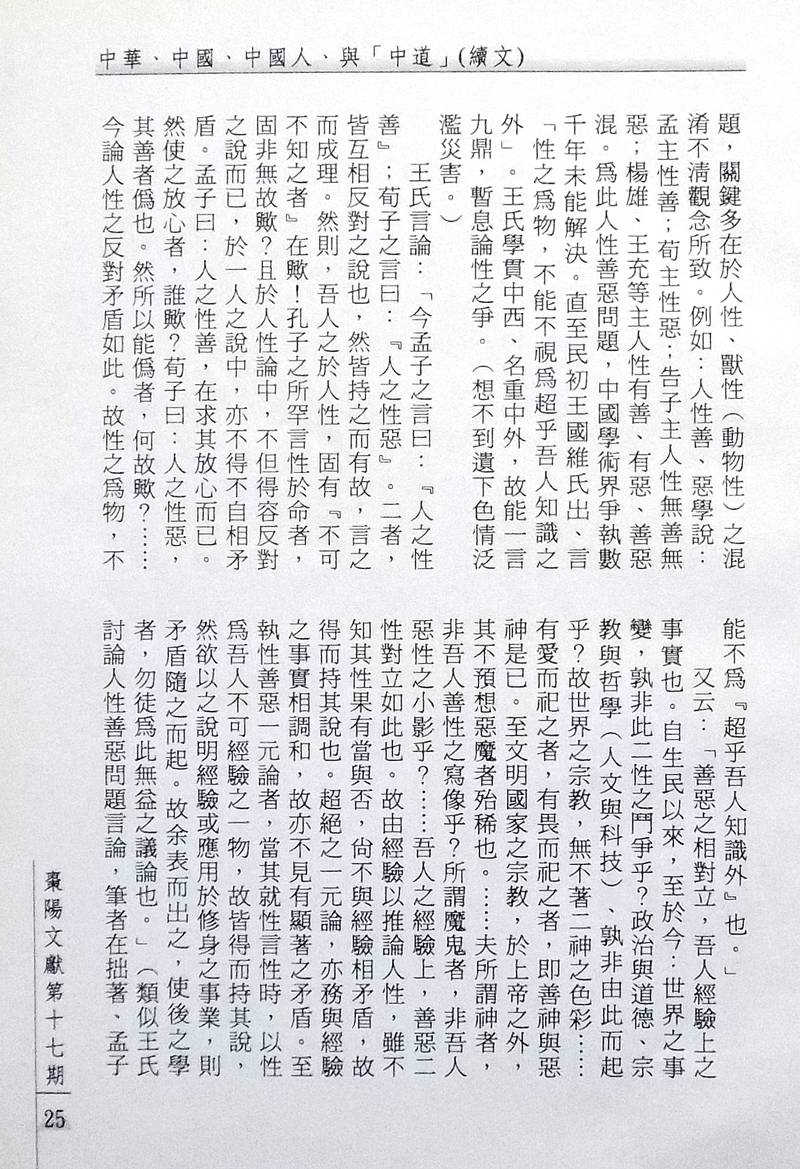 中華、中國、中國人、與「中道」(續文)
題，關鍵多在於人性、獸性（動物性）之混
淆不清觀念所致。例如：人性善、惡學說：
孟主性善；荀主性惡；告子主人性無善無
惡；楊雄、王充等主人性有善、有惡、善惡
混。爲此人性善惡問題，中國學術界爭執數
千年未能解決。直至民初王國維氏出、言
「性之爲物，不能不視爲超乎吾人知識之
外」。王氏學貫中西、名重中外，故能一言
九鼎，暫息論性之爭。（想不到遺下色情泛
濫災害。）
王氏言論：「今孟子之言曰：『人之性
善』；荀子之言曰：『人之性惡』。二者，
皆互相反對之說也，然皆持之而有故，言之
而成理。然則，吾人之於人性，固有『不可
不知之者』在歟！孔子之所罕言性於命者，
固非無故歟？且於人性論中，不但得容反對
之說而已，於一人之說中，亦不得不自相矛
盾。孟子曰：人之性善，在求其放心而已。
然使之放心者，誰歟？荀子曰：人之性惡，
其善者僞也。然所以能僞者，何故歟？……
今論人性之反對矛盾如此。故性之爲物，不
能不爲『超乎吾人知識外』也。」
又云：「善惡之相對立，吾人經驗上之
事實也。自生民以來，至於今：世界之事
變，孰非此二性之鬥爭乎？政治與道德、宗
教與哲學（人文與科技）、孰非由此而起
乎？故世界之宗教，無不著二神之色彩……
有愛而祀之者，有畏而祀之者，即善神與惡
神是已。至文明國家之宗教，於上帝之外，
其不預想惡魔者殆稀也。……夫所謂神者，
非吾人善性之寫像乎？所謂魔鬼者，非吾人
惡性之小影乎？……吾人之經驗上，善惡二
性對立如此也。故由經驗以推論人性，雖不
知其性果有當與否，尚不與經驗相矛盾，故
得而持其說也。超絕之一元論，亦務與經驗
之事實相調和，故亦不見有顯著之矛盾。至
執性善惡一元論者，當其就性言性時，以性
爲吾人不可經驗之一物，故皆得而持其說，
然欲以之說明經驗或應用於修身之事業，則
矛盾隨之而起。故余表而出之，使後之學
者，勿徒爲此無益之議論也。」（類似王氏
討論人性善惡問題言論，筆者在拙著、孟子
棗陽文獻第十七期
25